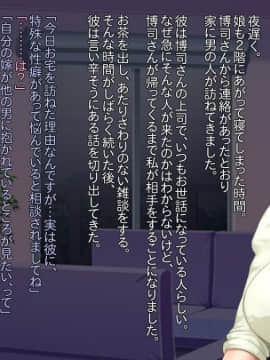 夜遅く。
娘も2階にあがって寝てしまった時間。
博司さんから連絡があったとおり
家に男の人が訪ねてきました。
彼は博司さんの上司で、いつもお世話になっている人らしい。
なぜ急にそんな人が来たのかはわからないけど、
博司さんが帰ってくるまで私が相手をすることになりました。
お茶を出し、あたりさわりのない雑談をする。
そんな時間がしばらく続いた後、
彼は言い辛そうにある話を切り出してきた。
「今日お宅を訪ねた理由なんですが…実は彼に、
特殊な性癖があって悩んでいると相談されましてね」
「………は?」
「自分の嫁が他の男に抱かれているところが見たい、って」